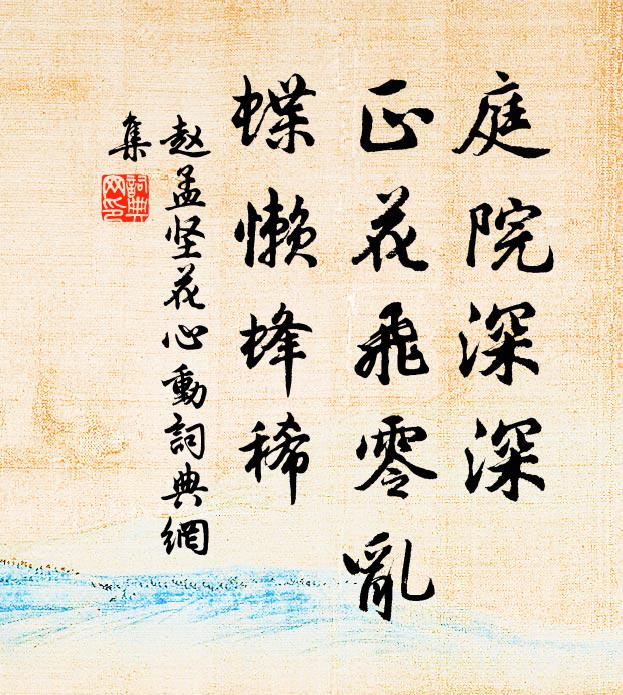 庭院深深
正花飛零亂
蝶懒蜂稀
赵孟坚花心動詞典網
集
詞典
网印